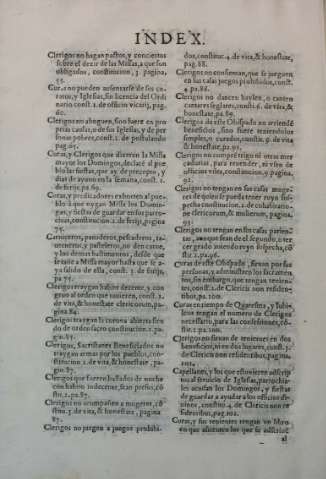 INDEX.
Clerigos no hagan pactos, y conciertos
sobre el dezir de las Missas, a que son
obligados, constitucion, 3. pagina,
55.
Curas no pueden ausentarse de sus
, y Iglesias, sin licencia del Ordi
nario const. 2. de officio vicarij, pag.
60.
Clerigos no aboguen, sino fuere en pro
prias causas, o de sus Iglesias, y de per
sonas pobres, const. 1. de postulando
pag. 65.
Curas, y Clerigos que dizen la Missa
mayor los Domingos, declaren al pue
blo las fiestas, que ay de precepto, y
dias de ayuno en la semana, const. 1.
de ferijs, pa. 69.
Curas, y predicadores exhorten al pue
blo a que oygan Missa los Domin
gos, y fiestas de guardar en sus parro
chias, constitucion, 2. de ferijs, pagina
75.
Carniceros, panaderos, pescadores, ta
uerneros, y pasteleros, no den carne,
y los demas bastimentos, desde que
se tañe a Missa mayor hasta que se a-
ya salido de ella, const. 3. de ferijs,
pa. 75.
Clerigos traygan habito decente, y con
gruo al orden que tuuieren, const. 1.
de vita, & honestate clericorum, pa-
gina 84.
Clerigos traygan la corona abierta sien
do de orden sacro constitucion. 2. pa-
gina. 87.
Clerigos, Sacristanes Beneficiados no
traygan armas por los pueblos, con-
stitucion. 2. de vita, & honestate, pa-
gina. 87.
Clerigos que fueren hallados de noche
con habito indecente, sean presos, co
stit. 2. pagina. 87.
Clerigos no acompañen a mugeres, co
stitu. 3. de vita, & honestate, pagina
87.
Clerigos no jueguen a juegos prohibi-
dos, constitu. 4. de vita, & honestate,
pag. 88.
Clerigos no consientan, que se jueguen
en sus casas juegos prohibidos, const.
4. pa. 88.
Clerigos no dancen baylen, o canten
cantares seglares, constit. 6. de vita,
& honestate, pa. 89.
Clerigos de este Obispado no arrienden
beneficios, sino fuere teniendolos
simples, o curados, constit. 9. de vita
& honestate, pa. 91.
Clerigos no compren trigo ni otras mer
cadurias, para reuender, ni vsen de
officios viles, constitucion, 9. pagina
92.
Clerigos no tengan en sus casas muge-
res de quien se pueda tener ruyn sos-
pecha constitucion. 1. de cohabitatio
ne clericorum, & mulierum, pagina.
Clerigos no tengan en sus casas parien-
tas, aunque sean de el segundo, o ter
cer grado interduenga sospecha, co
stit. 2. pa. 96.
Curas de este Obispado, siruan por sus
personas, y administren los sacramen
tos, sin embargo, que tengan tenien-
tes, const. 1. de Clericis non residen-
tibus, pa. 100.
Curas en tiempo de Quaresma, y Iubi-
leos tengan el numero de Clerigos
necessario, para las confessiones, co-
stit. 1. pa. 100.
Clerigos no siruan de tenientes en dos
beneficios, ni en dos lugares, const. 3.
de Clericis non residentibus, pagina.
102.
Capellanes, y los que estuuieren adscrip
tos al seruicio de Iglesias, parrochia-
les acudan los Domingos, y fiestas
de guardar a ayudar a los officios di-
uinos, constitu. 4. de Clericis non re
sidentibus, pag. 102.
Curas, y sus tenientes tengan vn libro
en que assienten los que se
al